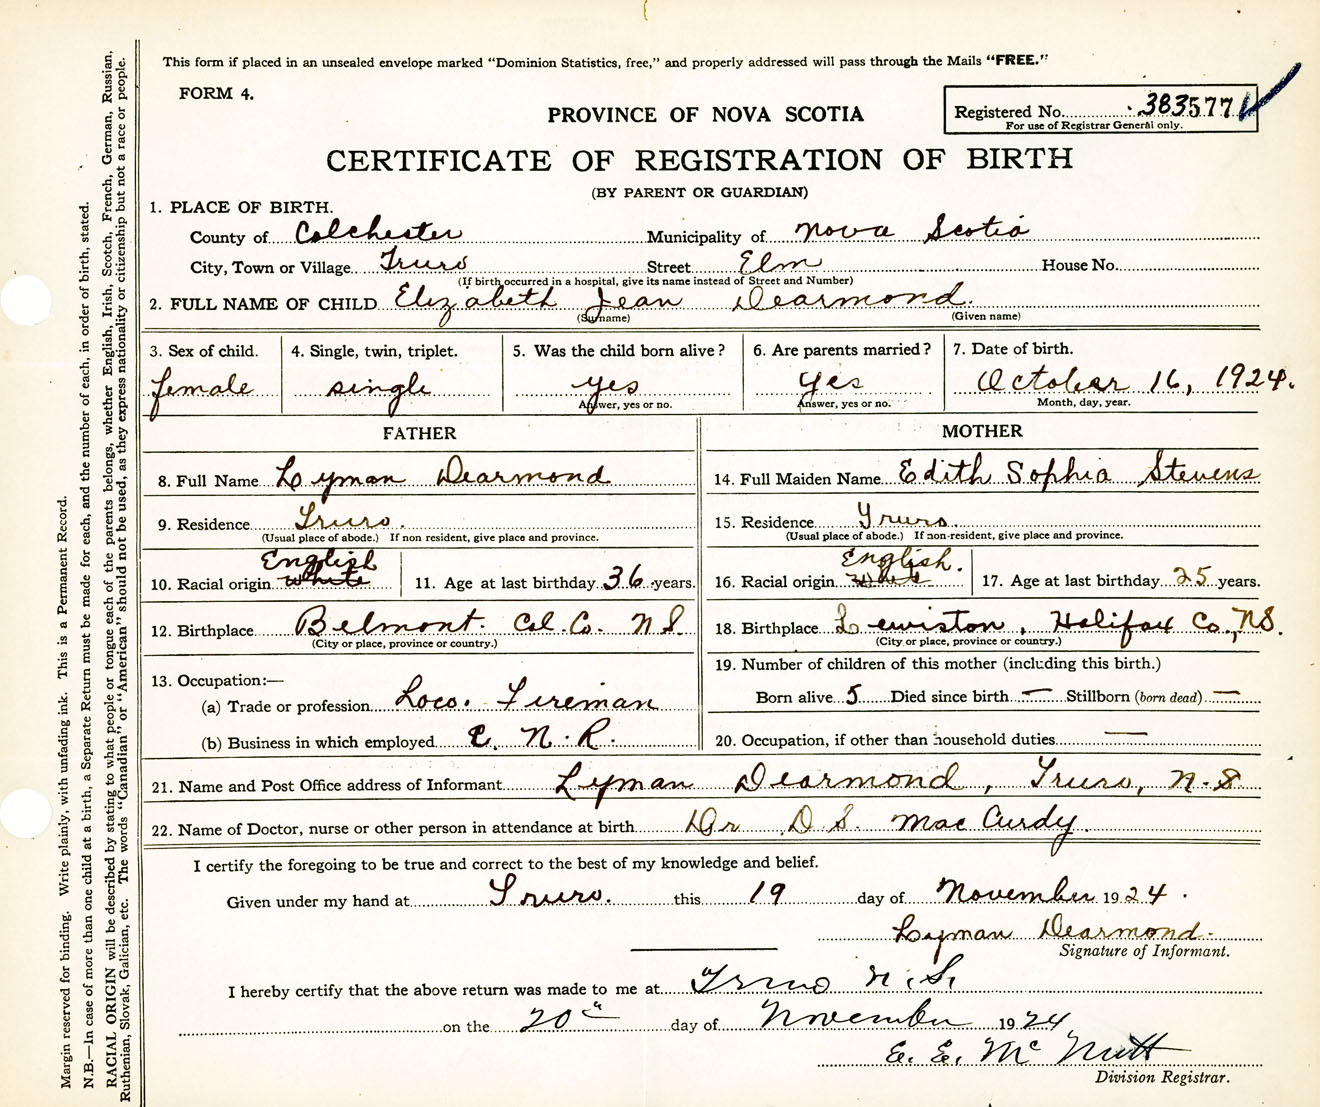 This form if placed in an unsealed envelope marked "Dominion Statistics, free," and properly addressed will pass through the Mails "FREE."
FORM 4.
Registered No. 383577
For use of Registrar General only.
PROVINCE OF NOVA SCOTIA
CERTIFICATE OF REGISTRATION OF BIRTH
(BY PARENT OR GUARDIAN)
1. PLACE OF BIRTH.
County of Colchester Municipality of Nova Scotia
City, Town or Village Truro Street Elm House No.
(If birth occurred in a hospital, give its name instead of Street and Number)
2. FULL NAME OF CHILD Elizabeth Jean Dearmond.
(Surname) (Given name)
3. Sex of child. 4. Single, twin, triplet. 5. Was the child born alive? 6. Are parents married? 7. Date of birth.
female single yes yes October 16, 1924.
Answer, yes or no. Answer, yes or no. Month, day, year.
FATHER
8. Full Name Lyman Dearmond
9. Residence Truro.
(Usual place of abode.) If non resident, give place and province.
English
10. Racial origin White 11. Age at last birthday 36 years.
12. Birthplace Belmont. Col. Co. N.S.
(City or place, province or country.)
13. Occupation:—
(a) Trade or profession Loco. Fireman
(b) Business in which employed C. N. R.
MOTHER
14. Full Maiden Name Edith Sophia Stevens
15. Residence Truro.
(Usual place of abode.) If non-resident, give place and province.
English.
16. Racial origin White 17. Age at last birthday 25 years.
18. Birthplace Lewiston, Halifax Co., N.S.
(City or place, province or country.)
19. Number of children of this mother (including this birth.)
Born alive 5 Died since birth — Stillborn (born dead) —
20. Occupation, if other than household duties —
21. Name and Post Office address of Informant Lyman Dearmond, Truro, N.S.
22. Name of Doctor, nurse or other person in attendance at birth Dr D.S. MacCurdy.
I certify the foregoing to be true and correct to the best of my knowledge and belief.
Given under my hand at Truro. this 19 day of November 1924.
Lyman Dearmond.
Signature of Informant.
I hereby certify that the above return was made to me at Truro N.S.
on the 20th day of November 1924
E. E. McNutt
Division Registrar.
Margin reserved for binding. Write plainly, with unfading ink. This is a Permanent Record.
N.B.—In case of more than one child at a birth, a Separate Return must be made for each, and the number of each, in order of birth, stated.
RACIAL ORIGIN will be described by stating to what people or tongue each of the parents belongs, whether English, Irish, Scotch, French, German, Russian,
Ruthenian, Slovak, Galician, etc. The words "Canadian" or "American" should not be used, as they express nationality or citizenship but not a race or people.